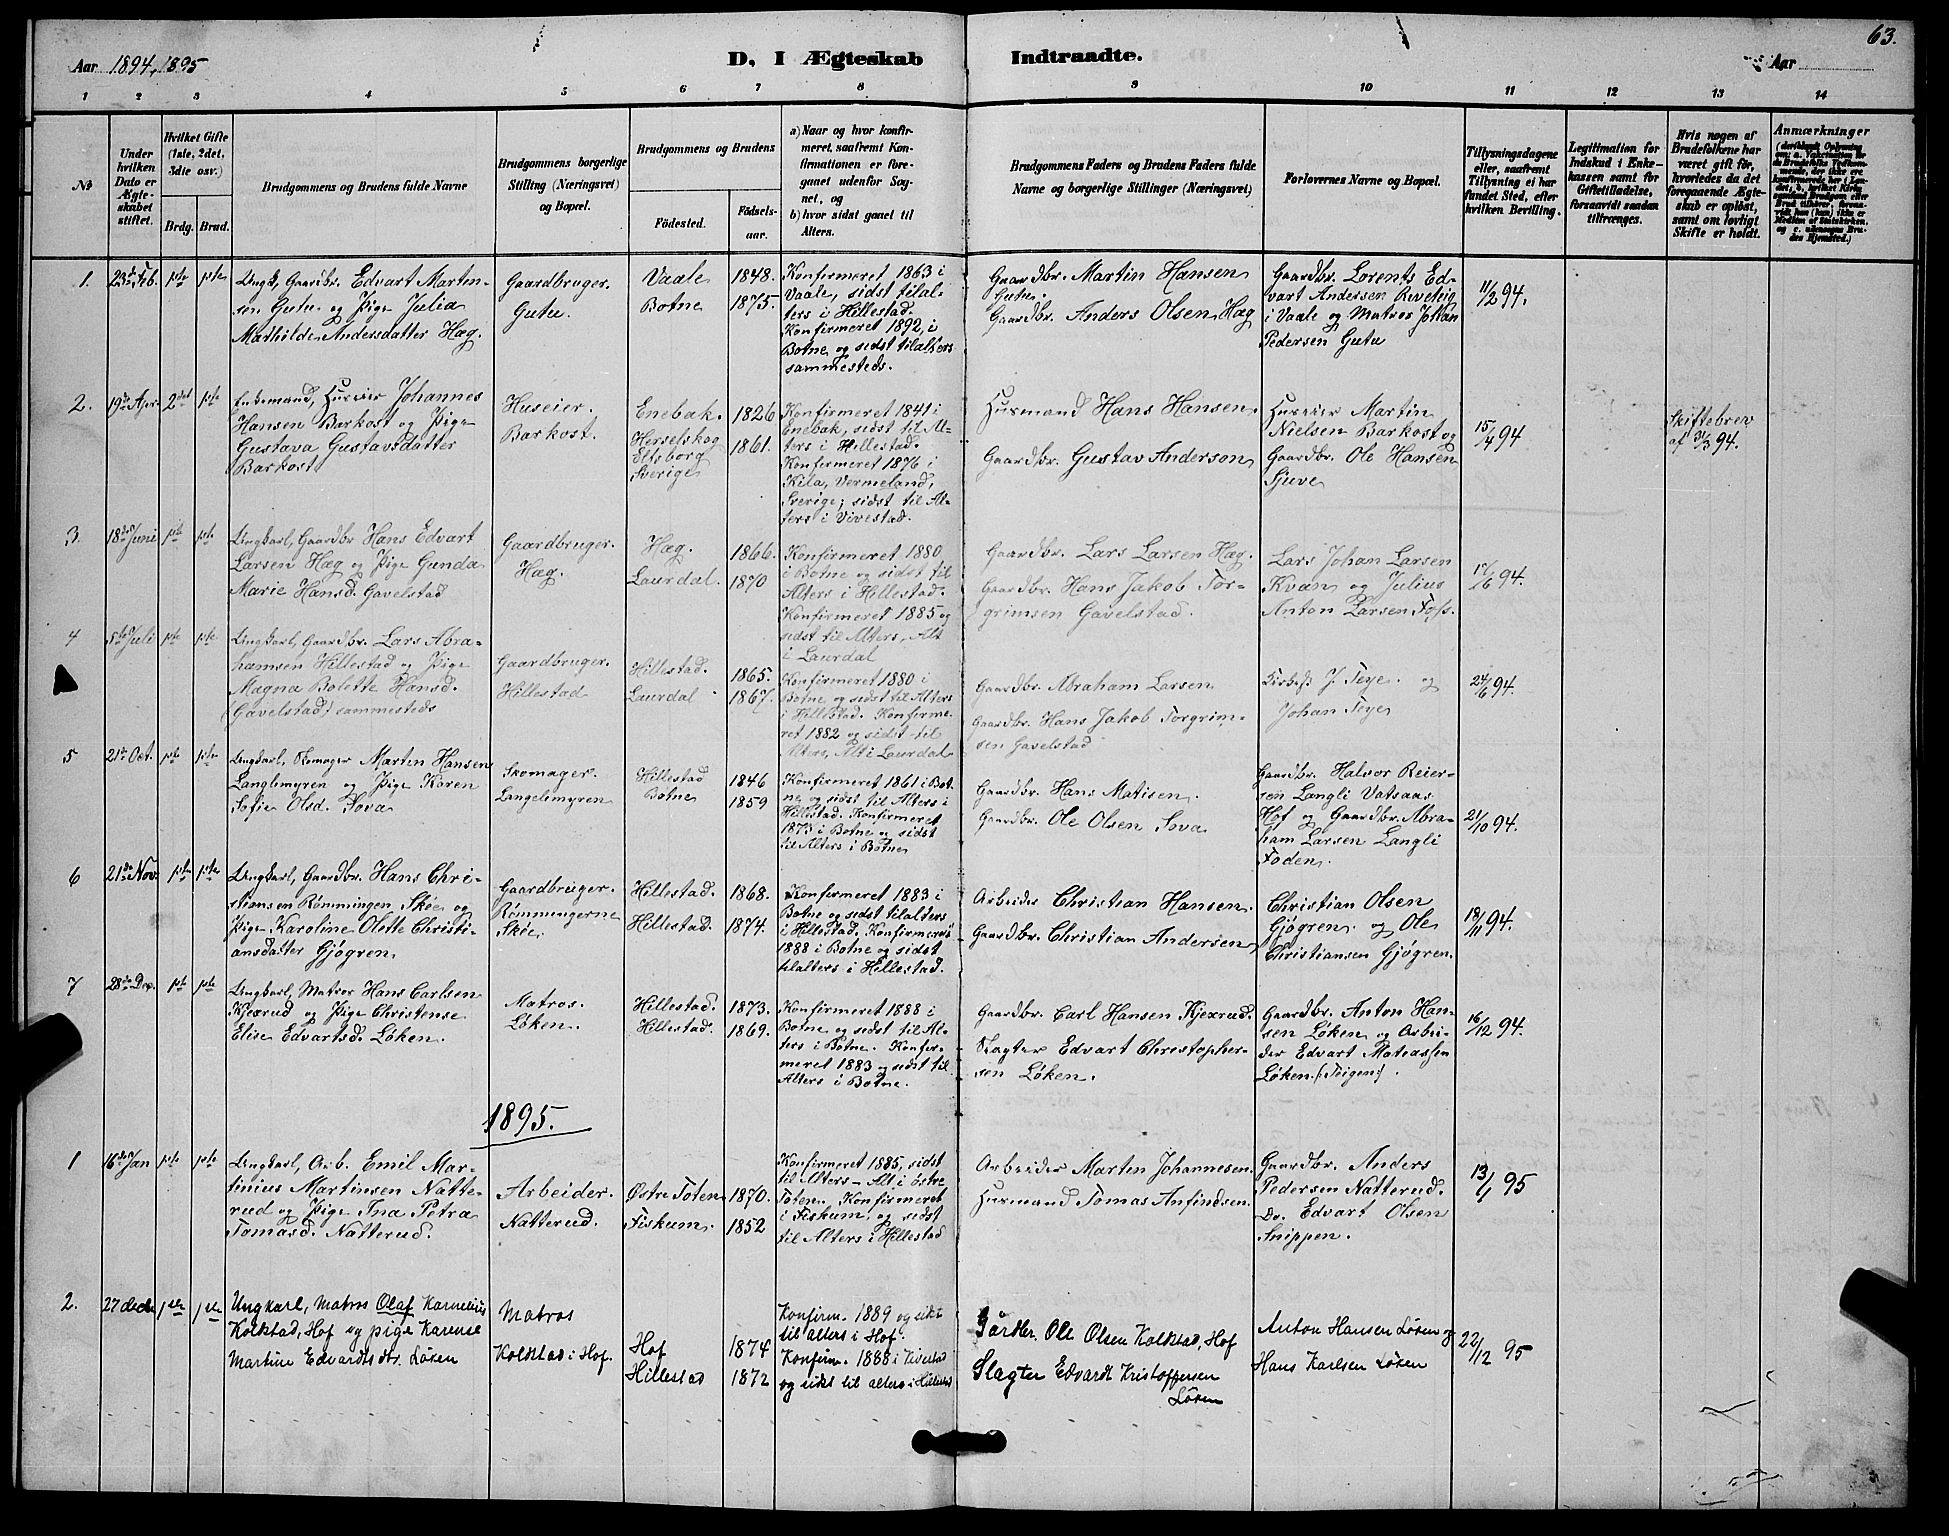 Aar 1894, 1895
D. I Ægteskab Indtraadte.
63.
Aar
1 2 3 4 5 6 7 8 9 10 11 12 13 14
No
Under
hvilken
Dato er
Ægte-
skabet
stiftet.
Hvilket Gifte
(1ste, 2det,
3die osv.)
Brdg. Brud.
Brudgommens og Brudens fulde Navne
Brudgommens borgerlige
Stilling (Næringsvei)
og Bopæl.
Brudgommens og Brudens
Födested.
Födsels-
aar.
a) Naar og hvor konfir-
meret, saafremt Kon-
firmationen er fore-
gaaet udenfor Sog-
net, og
b) hvor sidst gaaet til
Alters.
Brudgommens Faders og Brudens Faders fulde
Navne og borgerlige Stillinger (Næringsvei)
Forlovernes Navne og Bopæl.
Tillysningsdagene
eller, saafremt
Tillysning ei har
fundet Sted, efter
hvilken Bevilling.
Legitimation for
Indskud i Enke-
kassen samt for
Giftetilladelse,
forsaavidt saadan
tiltrænges.
Hvis nogen af
Brudefolkene har
været gift før,
hvorledes da det
foregaaende Ægte-
skab er oplöst,
samt om lovligt
Skifte er holdt.
Anmærkninger
1. 23de Feb. 1ste 1ste
Ungk, Gaardbr. Edvart Martin-
sen Gutu og Pige Julia
Mathilde Andersdatter Hæg.
Gaardbruger.
Gutu.
Vaale 1848.
Botne 1875.
Konfirmeret 1863 i
Vaale, sidst tilal-
ters i Hillestad.
Konfirmeret 1892, i
Botne og sidst tilalters
sammesteds.
Gaardbr. Martin Hansen
Gutu.
Gaardbr. Anders Olsen Hæg
Gaardbr. Lorents Ed-
vart Andersen Reveteig
i Vaale og Matros Johan
Pedersen Gutu
11/2 94.
2. 19de Apr. 2det 1ste
Enkemand, Huseier Johannes
Hansen Barkost og Pige
Gustava Gustavsdatter
Barkost
Huseier.
Barkost.
Enebak. 1826
Herselskog
Elfsborg 1861.
Sverige
Konfirmeret 1841 i
Enebak, sidst til Al-
ters i Hillestad.
Konfirmeret 1876 i
Kila, Vermeland,
Sverige; sidst til Al-
ters i Vivestad.
Husmand Hans Hansen.
Gaardbr. Gustav Anderson
Huseier Martin
Nielsen Barkost og
Gaardbr. Ole Hansen
Sjuve
15/4 94
Skiftebrev
af 31/3 94.
3. 18de Juni 1ste 1ste
Ungkarl, Gaardbr Hans Edvart
Larsen Hæg og Pige Gunda
Marie Hansd. Gavelstad
Gaardbruger.
Hæg.
Hæg. 1866.
Laurdal. 1870
Konfirmeret 1880
i Botne og sidst til
Alters i Hillestad.
Konfirmeret 1885 og
sidst til Alters, Alt
i Laurdal
Gaardbr. Lars Larsen Hæg.
Gaardbr. Hans Jakob Tor-
grimsen Gavelstad.
Lars Johan Larsen
Kvan og Julius
Anton Larsen Foss.
17/6 94.
4 5te Juli 1ste 1ste
Ungkarl, Gaardbr. Lars Abra-
hamsen Hillestad og Pige
Magna Bolette Hansd.
(Gavelstad) sammesteds
Gaardbruger.
Hillestad
Hillestad. 1865.
Laurdal 1867.
Konfirmeret 1880 i
Botne og sidst til Alters
i Hillestad. Konfirme-
ret 1882 og sidst til
Alters, Alt i Laurdal
Gaardbr. Abraham Larsen
Gaardbr. Hans Jakob Torgrim-
sen Gavelstad
J. Teye og
Johan Teye
24/6 94.
5 21de Oct. 1ste 1ste
Ungkarl, Skomager Martin Hansen
Langlemyren og Pige Karen
Sofie Olsd. Sova
Skomager.
Langelemyren
Hillestad 1846
Botne 1859
Konfirmeret 1861 i Bot-
ne og sidst til Alters i
Hillestad. Konfirmeret
1873 i Botne og sidst
til Alters i Botne
Gaardbr. Hans Matisen.
Gaardbr. Ole Olsen Sova
Gaardbr. Halvor Reier-
sen Langli Vatsaas
Hof og Gaardbr. Abra-
ham Larsen Langli
Foden.
21/10 94.
6 21de Nov. 1ste 1ste
Ungkarl, Gaardbr. Hans Chri-
stiansen Rømmingen Skøe og
Pige Karoline Olette Christi-
ansdatter Gjøgren.
Gaardbruger.
Rømmingerne
Skøe.
Hillestad. 1868.
Hillestad. 1874.
Konfirmeret 1883 i
Botne og sidst tilalters
i Hillestad. Konfirmeret
1888 i Botne og sidst
tilalters i Hillestad.
Arbeider Christian Hansen.
Gaardbr. Christian Andersen
Christian Olsen
Gjøgren. og Ole
Christiansen Gjøgren.
18/11 94.
7 28de Dec. 1ste 1ste
Ungkarl, Matros Hans Carlsen
Kjexrud og Pige Christense
Elise Edvartsd. Løken.
Matros.
Løken.
Hillestad. 1873.
Hillestad. 1869.
Konfirmeret 1888 i
Botne og sidst til Al-
ters i Botne. Konfir-
meret 1883 og sidst til
Alters i Botne.
Gaardbr. Carl Hansen Kjexrud.
Slagter Edvart Christopher-
sen Løken.
Gaardbr. Anton Han-
sen Løken og Arbei-
der Edvart Mateassen
Løken (Teigen).
16/12 94.
1895.
1 16de Jan 1ste 1ste
Ungkarl, Arb. Emil Mar-
tinius Martinsen Natte-
rud og Pige Ina Petra
Tomasd. Natterud.
Arbeider.
Natterud.
Østre Toten 1870.
Fiskum. 1852
Konfirmeret 1885, sidst
til Alters – Alt i østre
Toten. Konfirmeret
i Fiskum, og sidst
til Alters i Hillestad
Arbeider Martin Johannesen.
Husmand Tomas Anfindsen.
Gaardbr. Anders
Pedersen Natterud.
Do. Edvart Olsen
Snippen.
13/1 95
2. 27 decbr 1ste 1ste
Ungkarl, Matros Olaf Kornelius
Kolkstad, Hof og pige Karense
Martine Edvardtsdtr. Løken
Matros
Kolkstad i Hof.
Hof 1874
Hillestad 1872
Konfirm. 1889 og sidst
til alters i Hof.
Konfirm. 1888 i
og sidst til alters i Hillestad
Gårdbr. Ole Olsen Kolkstad, Hof
Slagter Edvardt Kristoffersen
Løken
Anton Hansen Løken og
Hans Karlsen Løken
22/12 95